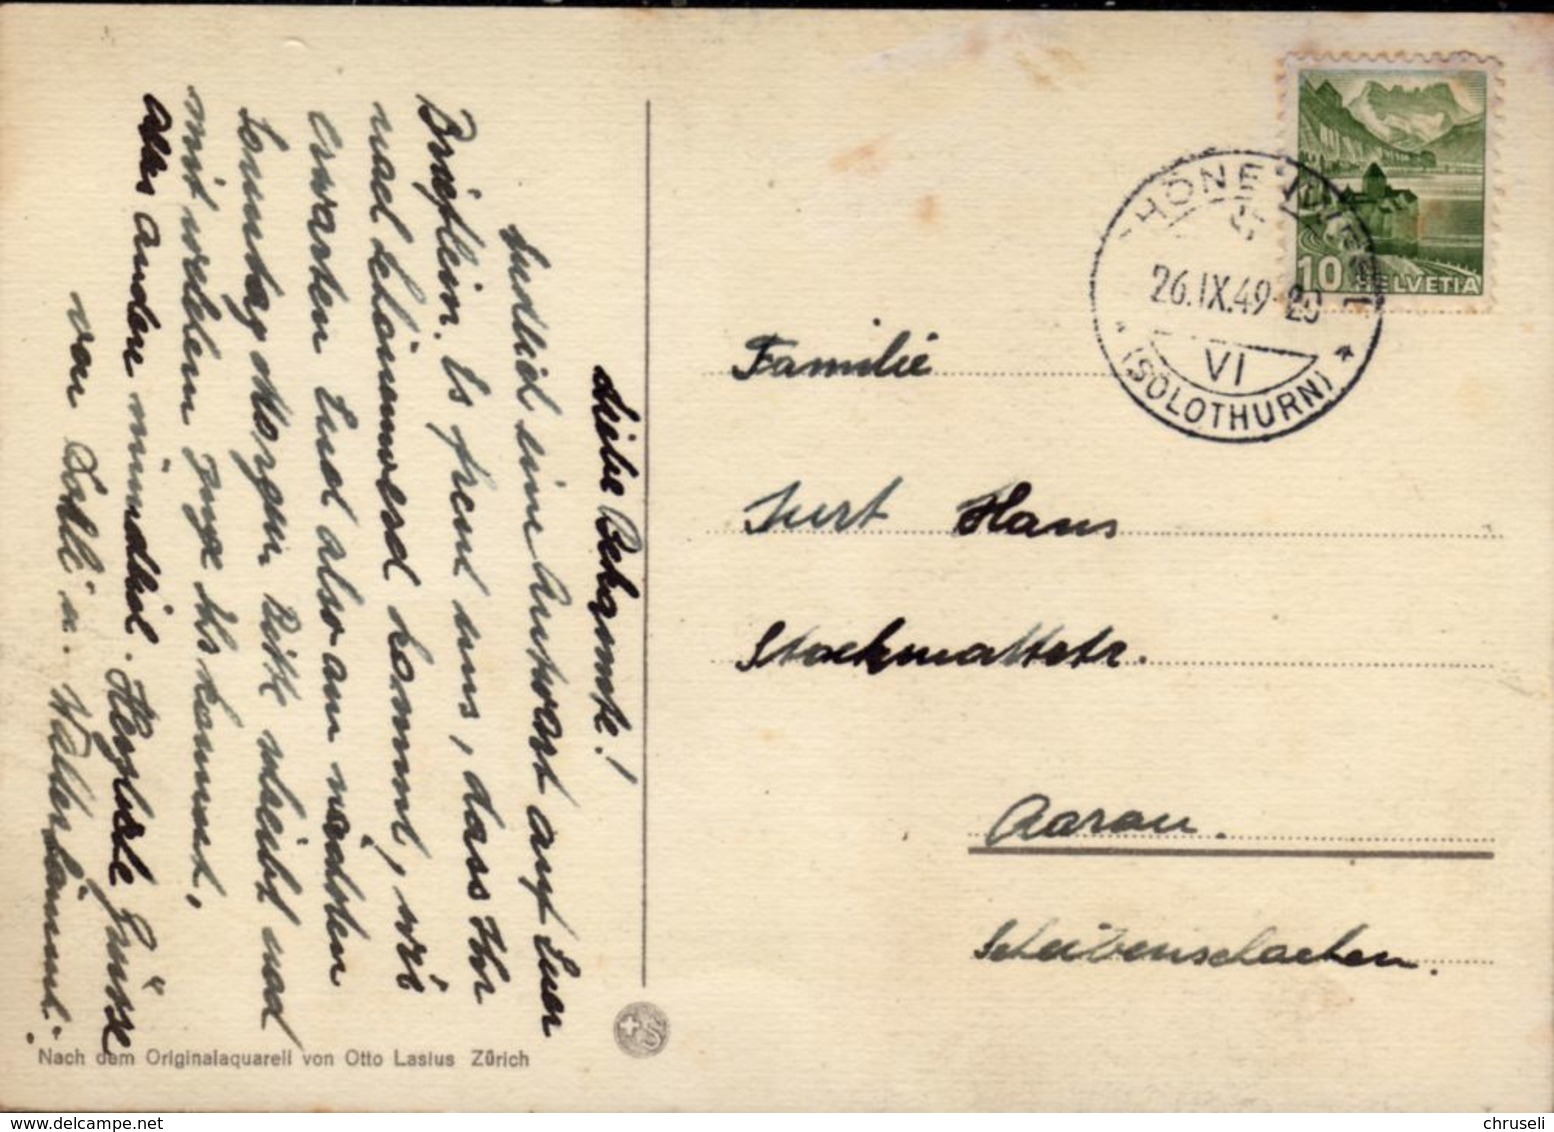 Liebe Bekannte!
Endlich eine Antwort auf Euer
Brieflein. Es freut uns, dass Ihr
nach Schönenwerd kommt, wir
erwarten Euch also am nächsten
Sonntag Morgen. Bitte schreibt noch
mit welchem Zuge Ihr kommt,
alles andere mündlich. Herzliche Grüsse
von Dölli u. Walter
Familie
Hans
Stockmattstr.
Aarau.
Scheibenschachen.
26.IX.49-20
VI
(SOLOTHURN)
10 HELVETIA
Nach dem Originalaquarell von Otto Lasius Zürich
chruseli